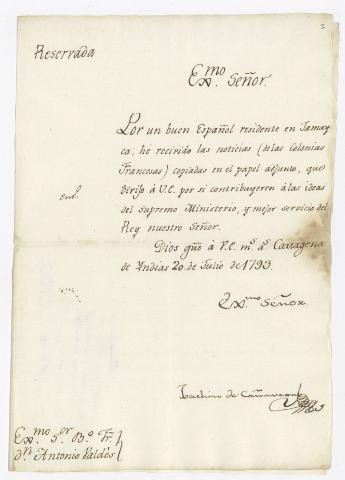 2
Reservada
Ex.mo Señor.
Por un buen Español residente en Jamay-
ca, he recivido las noticias (de las Colonias
Francesas) copiadas en el papel adjunto, que
dirijo à V.E. por si contribuyeren à las ideas
del Supremo Ministerio, y mejor servicio del
Rey nuestro Señor.
Dios güe à V.E. m.s a.s Cartagena
de Yndias 20 de Julio de 1793.
Ex.mo Señor
Joachin de Cañaveral
Ex.mo S.or B.o Fr.
d.n Antonio Valdés